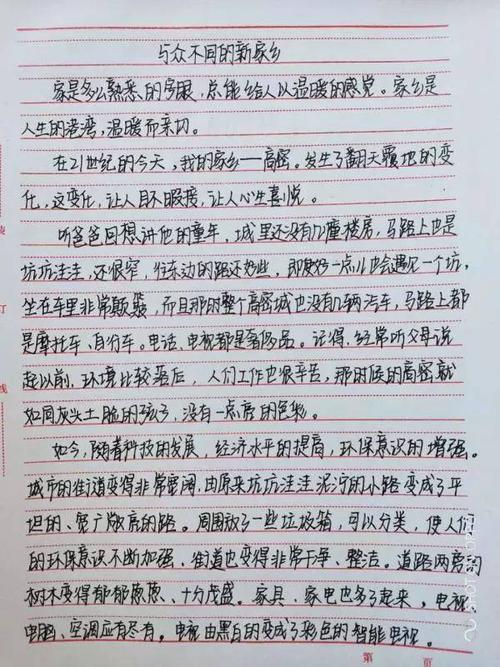 与众不同的新家乡
家是多么熟悉的字眼,总能给人以温暖的感觉。家乡是
人生的港湾,温暖而亲切。
在21世纪的今天,我的家乡——高密。发生了翻天覆地的变
化,这变化,让人目不暇接,让人心生喜悦。
听爸爸回想讲他的童年,城里还没有几幢楼房,马路上也是
坑坑洼洼,还很窄,往东边的路还好些,即使好一点儿也会遇见一个坑,
坐在车里非常颠簸,而且那时整个高密城也没有几辆汽车,马路上都
是摩托车、自行车。电话、电视都是奢侈品。记得,经常听父母说
起以前,环境比较落后,人们工作也很辛苦,那时候的高密就
如同灰头土脸的孩子,没有一点亮的色彩。
如今,随着科技的发展,经济水平的提高,环保意识的增强。
城市的街道变得非常宽阔,由原来坑坑洼洼泥泞的小路变成了平
坦的、宽广敞亮的路。周围放了一些垃圾箱,可以分类,使人们
的环保意识不断加强,街道也变得非常干净、整洁。道路两旁的
树木变得郁郁葱葱、十分茂盛。家具、家电也多了起来,电视、
电脑、空调应有尽有。电视由黑白的变成了彩色的智能电视。
第 页
线
订